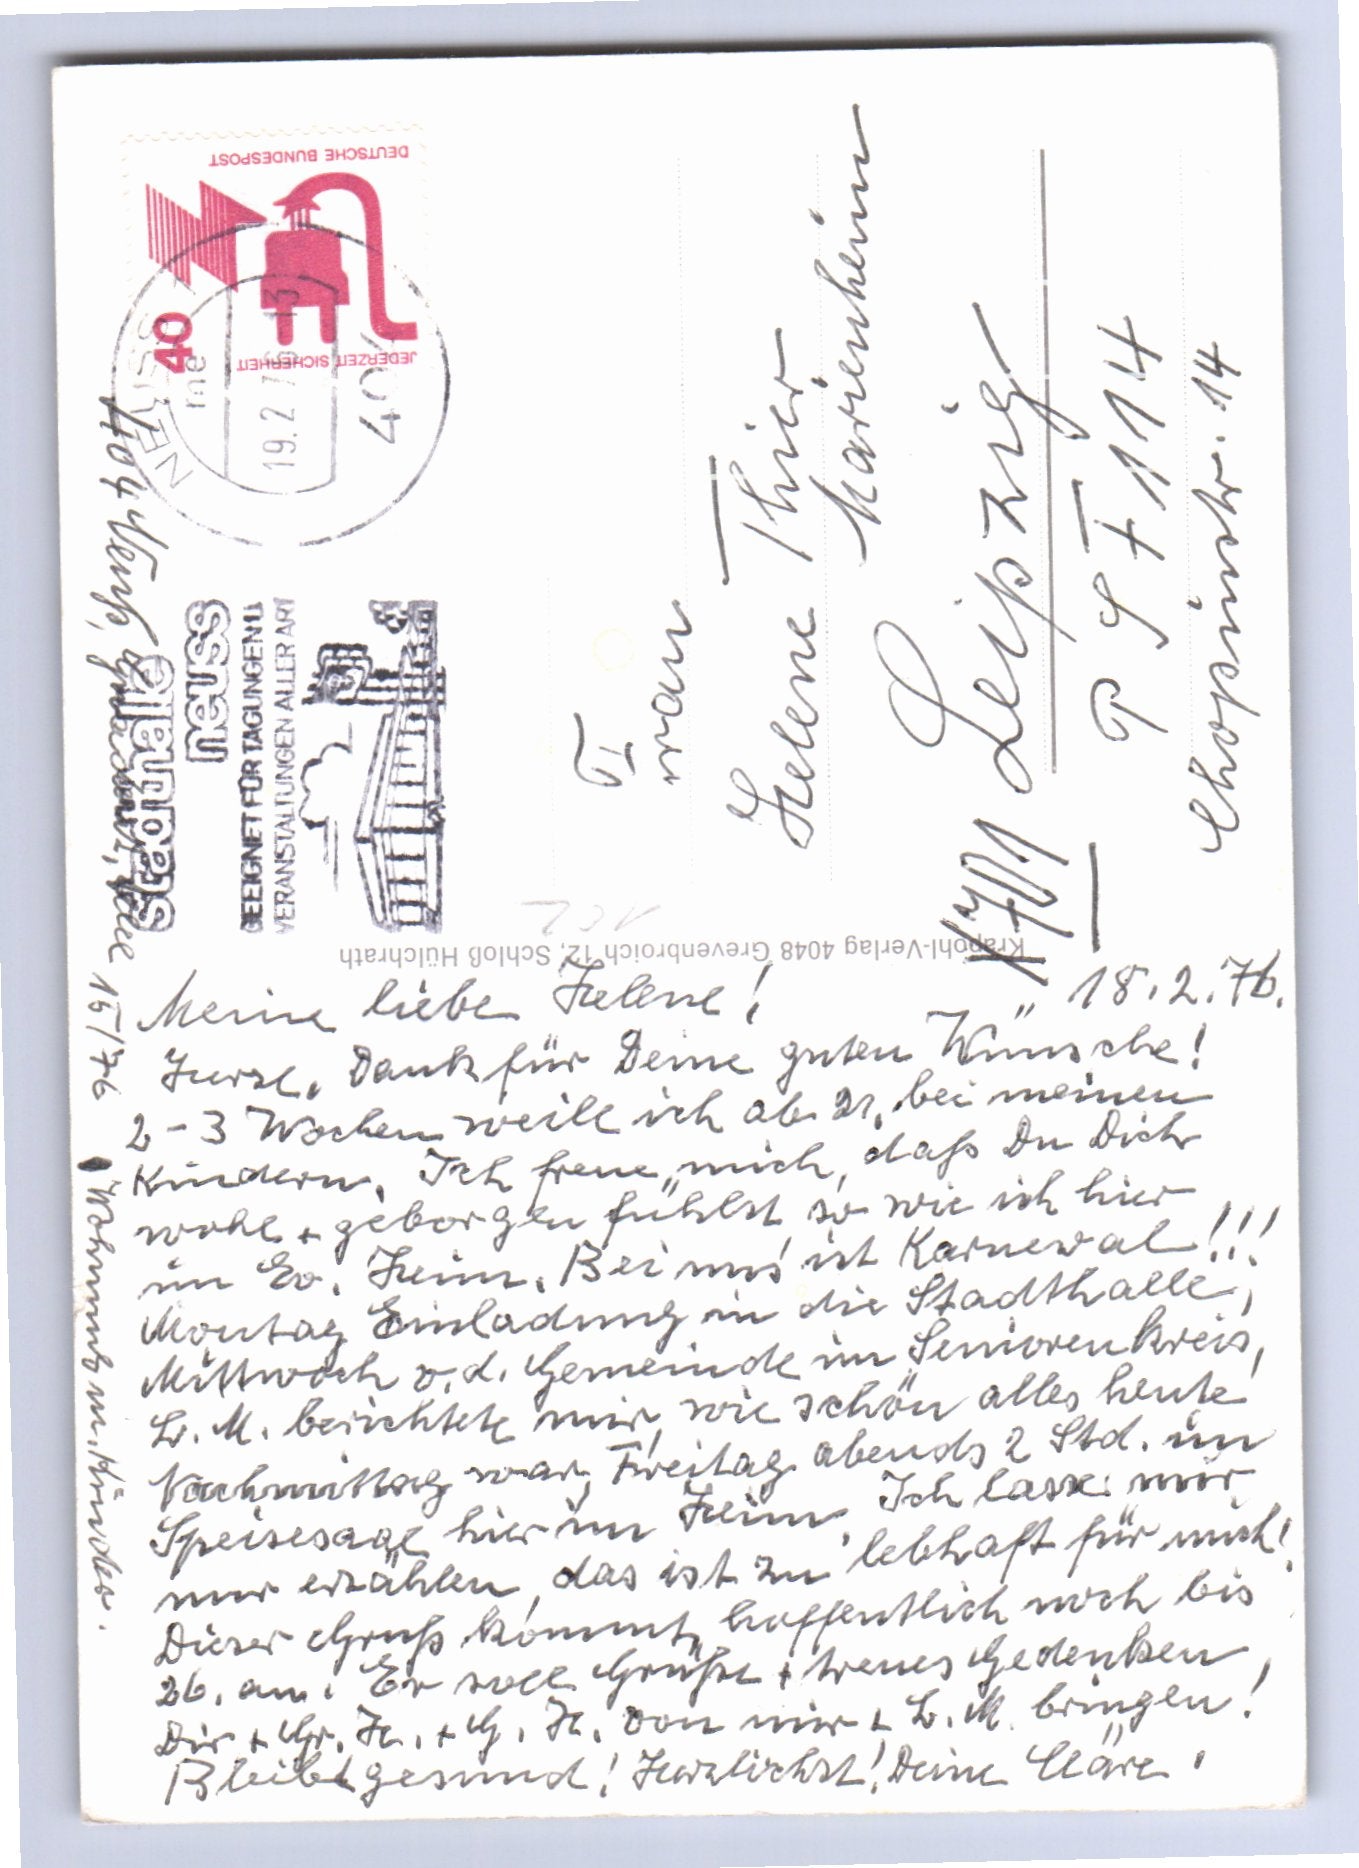 DEUTSCHE BUNDESPOST
JEDERZEIT SICHERHEIT
40
NEUSS
me
19.2.76-13
404
Stadthalle
neuss
GEEIGNET FÜR TAGUNGEN U.
VERANSTALTUNGEN ALLER ART
Krapohl-Verlag 4048 Grevenbroich 12, Schloß Hülchrath
Frau
Helene Thier
Marienheim
701 Leipzig
PSF 1114
Chopinstr. 14
404 Neuß, 15/76
18.2.76.
Meine liebe Helene!
Herzl. Dank für Deine guten Wünsche!
2-3 Wochen weile ich ab 21. bei meinen
Kindern. Ich freue mich, daß Du Dich
wohl + geborgen fühlst so wie ich hier
im Ev. Heim. Bei uns ist Karneval!!!
Montag Einladung in die Stadthalle,
Mittwoch v. d. Gemeinde im Seniorenkreis,
L. M. berichtete mir, wie schön alles heute
Nachmittag war, Freitag abends 2 Std. im
Speisesaal hier im Heim. Ich lasse mir
nur erzählen, das ist zu lebhaft für mich!
Dieser Gruß kommt hoffentlich noch bis
26. an. Er soll Grüße + treues Gedenken
Dir + Gr. H. + G. H. von mir + L. M. bringen!
Bleibt gesund! Herzlichst! Deine Cläre.
Wohnung m. Kinder.